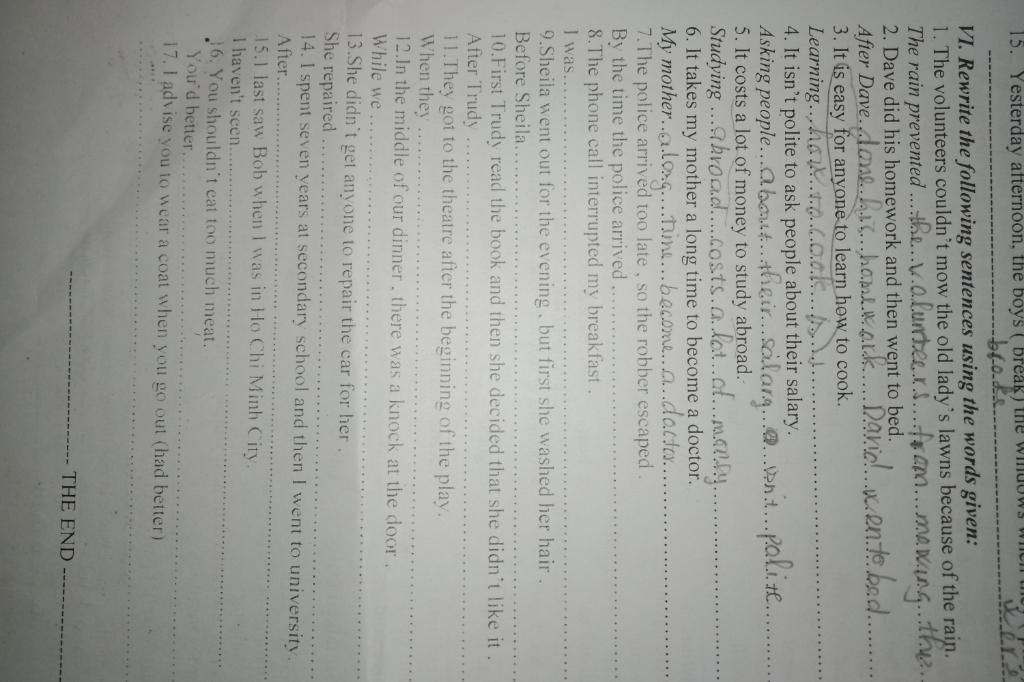 15. Yesterday afternoon, the boys ( break) the windows when
broke
VI. Rewrite the following sentences using the words given:
1. The volunteers couldn't mow the old lady's lawns because of the rain.
The rain prevented ...the...volunteers...from...mowing...the...
2. Dave did his homework and then went to bed.
After Dave.done.his..homework....David...went to bad.........
3. It is easy for anyone to learn how to cook.
Learning..how...to.cook...
4. It isn't polite to ask people about their salary.
Asking people...about..their...salary......isn't...polite..........
5. It costs a lot of money to study abroad.
Studying....abroad....costs..a.lot..of...money..........
6. It takes my mother a long time to become a doctor.
My mother..along...time...become..a..doctor..........
7.The police arrived too late , so the robber escaped .
By the time the police arrived ..........
8.The phone call interrupted my breakfast .
I was..........
9.Sheila went out for the evening , but first she washed her hair .
Before Sheila..........
10.First Trudy read the book and then she decided that she didn't like it .
After Trudy ..........
11.They got to the theatre after the beginning of the play.
When they ..........
12.In the middle of our dinner , there was a knock at the door .
While we ..........
13.She didn't get anyone to repair the car for her .
She repaired ..........
14. I spent seven years at secondary school and then I went to university.
After..........
15.I last saw Bob when I was in Ho Chi Minh City.
I haven't seen..........
16. You shouldn't eat too much meat.
You'd better..........
17. I advise you to wear a coat when you go out (had better)
..........
---------------------- THE END ----------------------